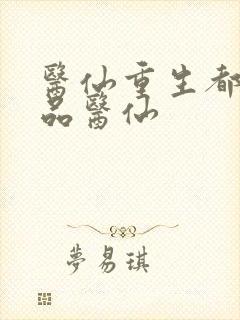 醫仙重生都
品醫仙
夢易琪